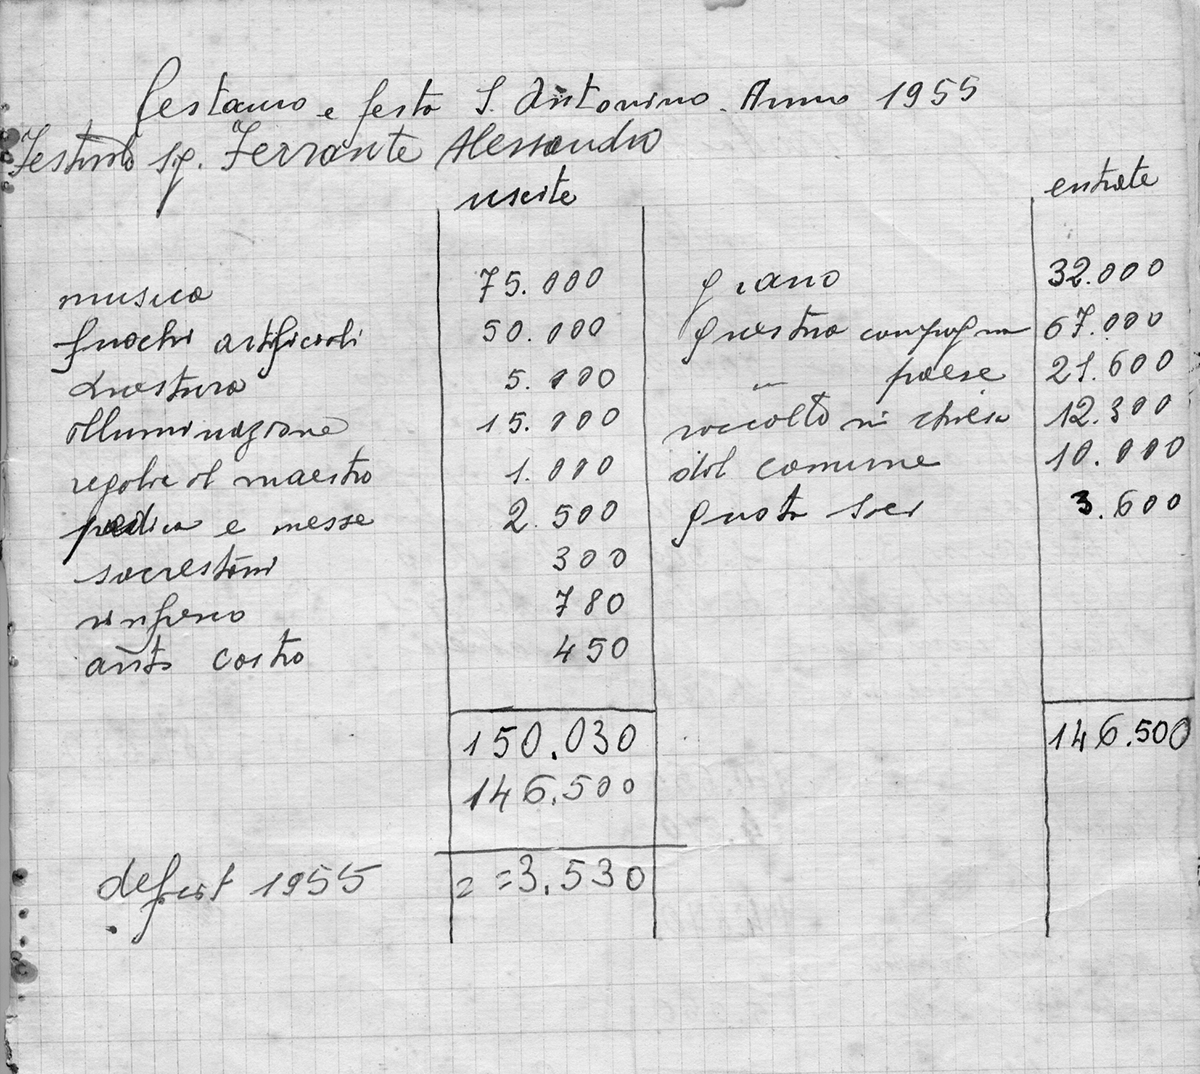 festaiuo e festa S. Antonino. Anno 1955
Sg. Ferrante Alessandro
uscite entrate
musica 75.000 grano 32.000
fuochi artificiali 50.000 questua campagna 67.000
questura 5.000 " paese 21.600
illuminazione 15.000 raccolto in chiesa 12.300
regalie al maestro 1.000 dal comune 10.000
predica e messe 2.500 quota soci 3.600
sacrestani 300
rinfresco 780
auto castro 450
150.030 146.500
146.500
deficit 1955 = =3.530